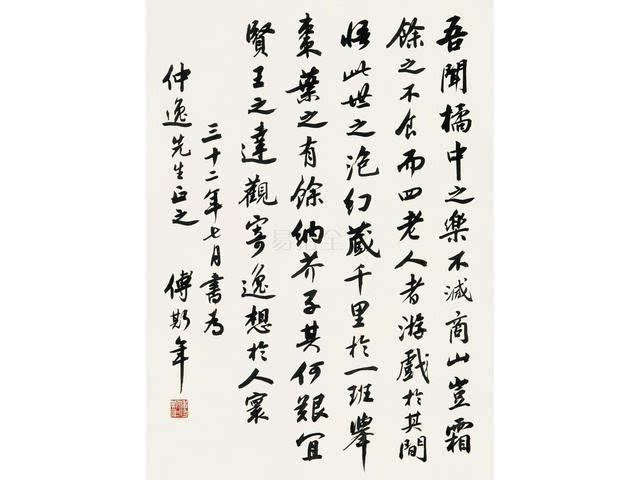 吾聞橘中之樂不減商山豈霜
餘之不食而四老人者游戲於其間
悟此世之泡幻藏千里於一班舉
棗葉之有餘納芥子其何艱宜
賢王之達觀寄逸想於人寰
三十二年七月書為
仲逸先生正之 傅斯年